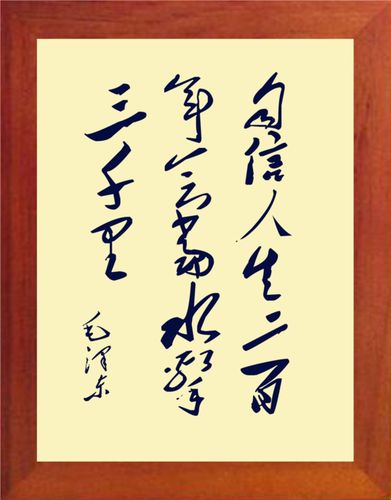 自信人生二百
年会当水击
三千里
毛泽东